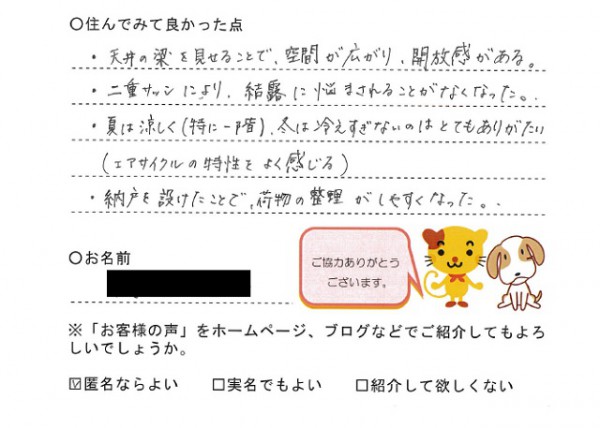 ○住んでみて良かった点
・天井の梁を見せることで、空間が広がり、開放感がある。
・二重サッシにより、結露に悩まされることがなくなった。
・夏は涼しく(特に一階)、冬は冷えすぎないのはとてもありがたい
(エアサイクルの特性をよく感じる)
・納戸を設けたことで、荷物の整理がしやすくなった。
○お名前
ご協力ありがとう
ございます。
※「お客様の声」をホームページ、ブログなどでご紹介してもよろ
しいでしょうか。
☑匿名ならよい □実名でもよい □紹介して欲しくない